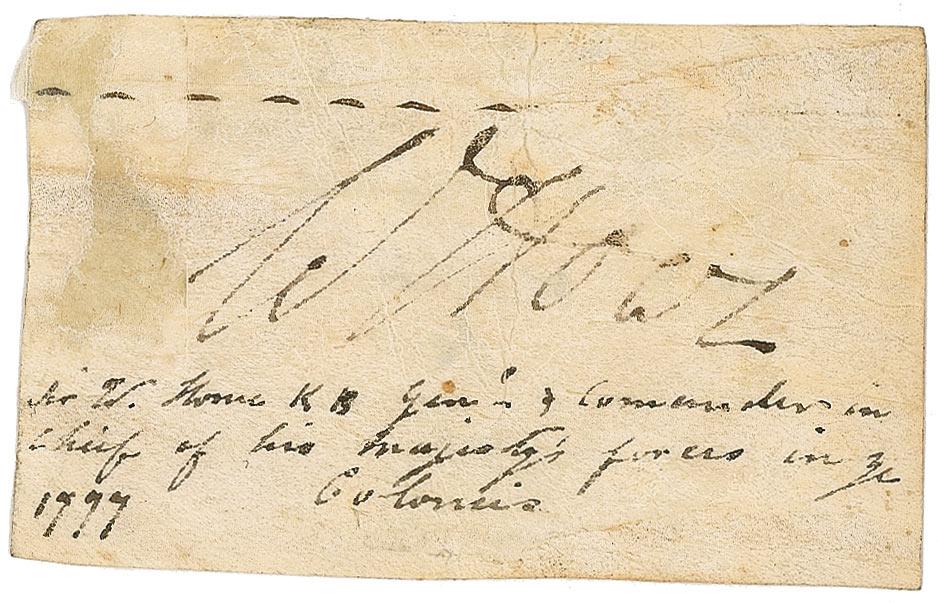 W Howe
Sir W. Howe K B Gen:l & Comander in
Chief of his majesty's forces in ye
Colonies
1777